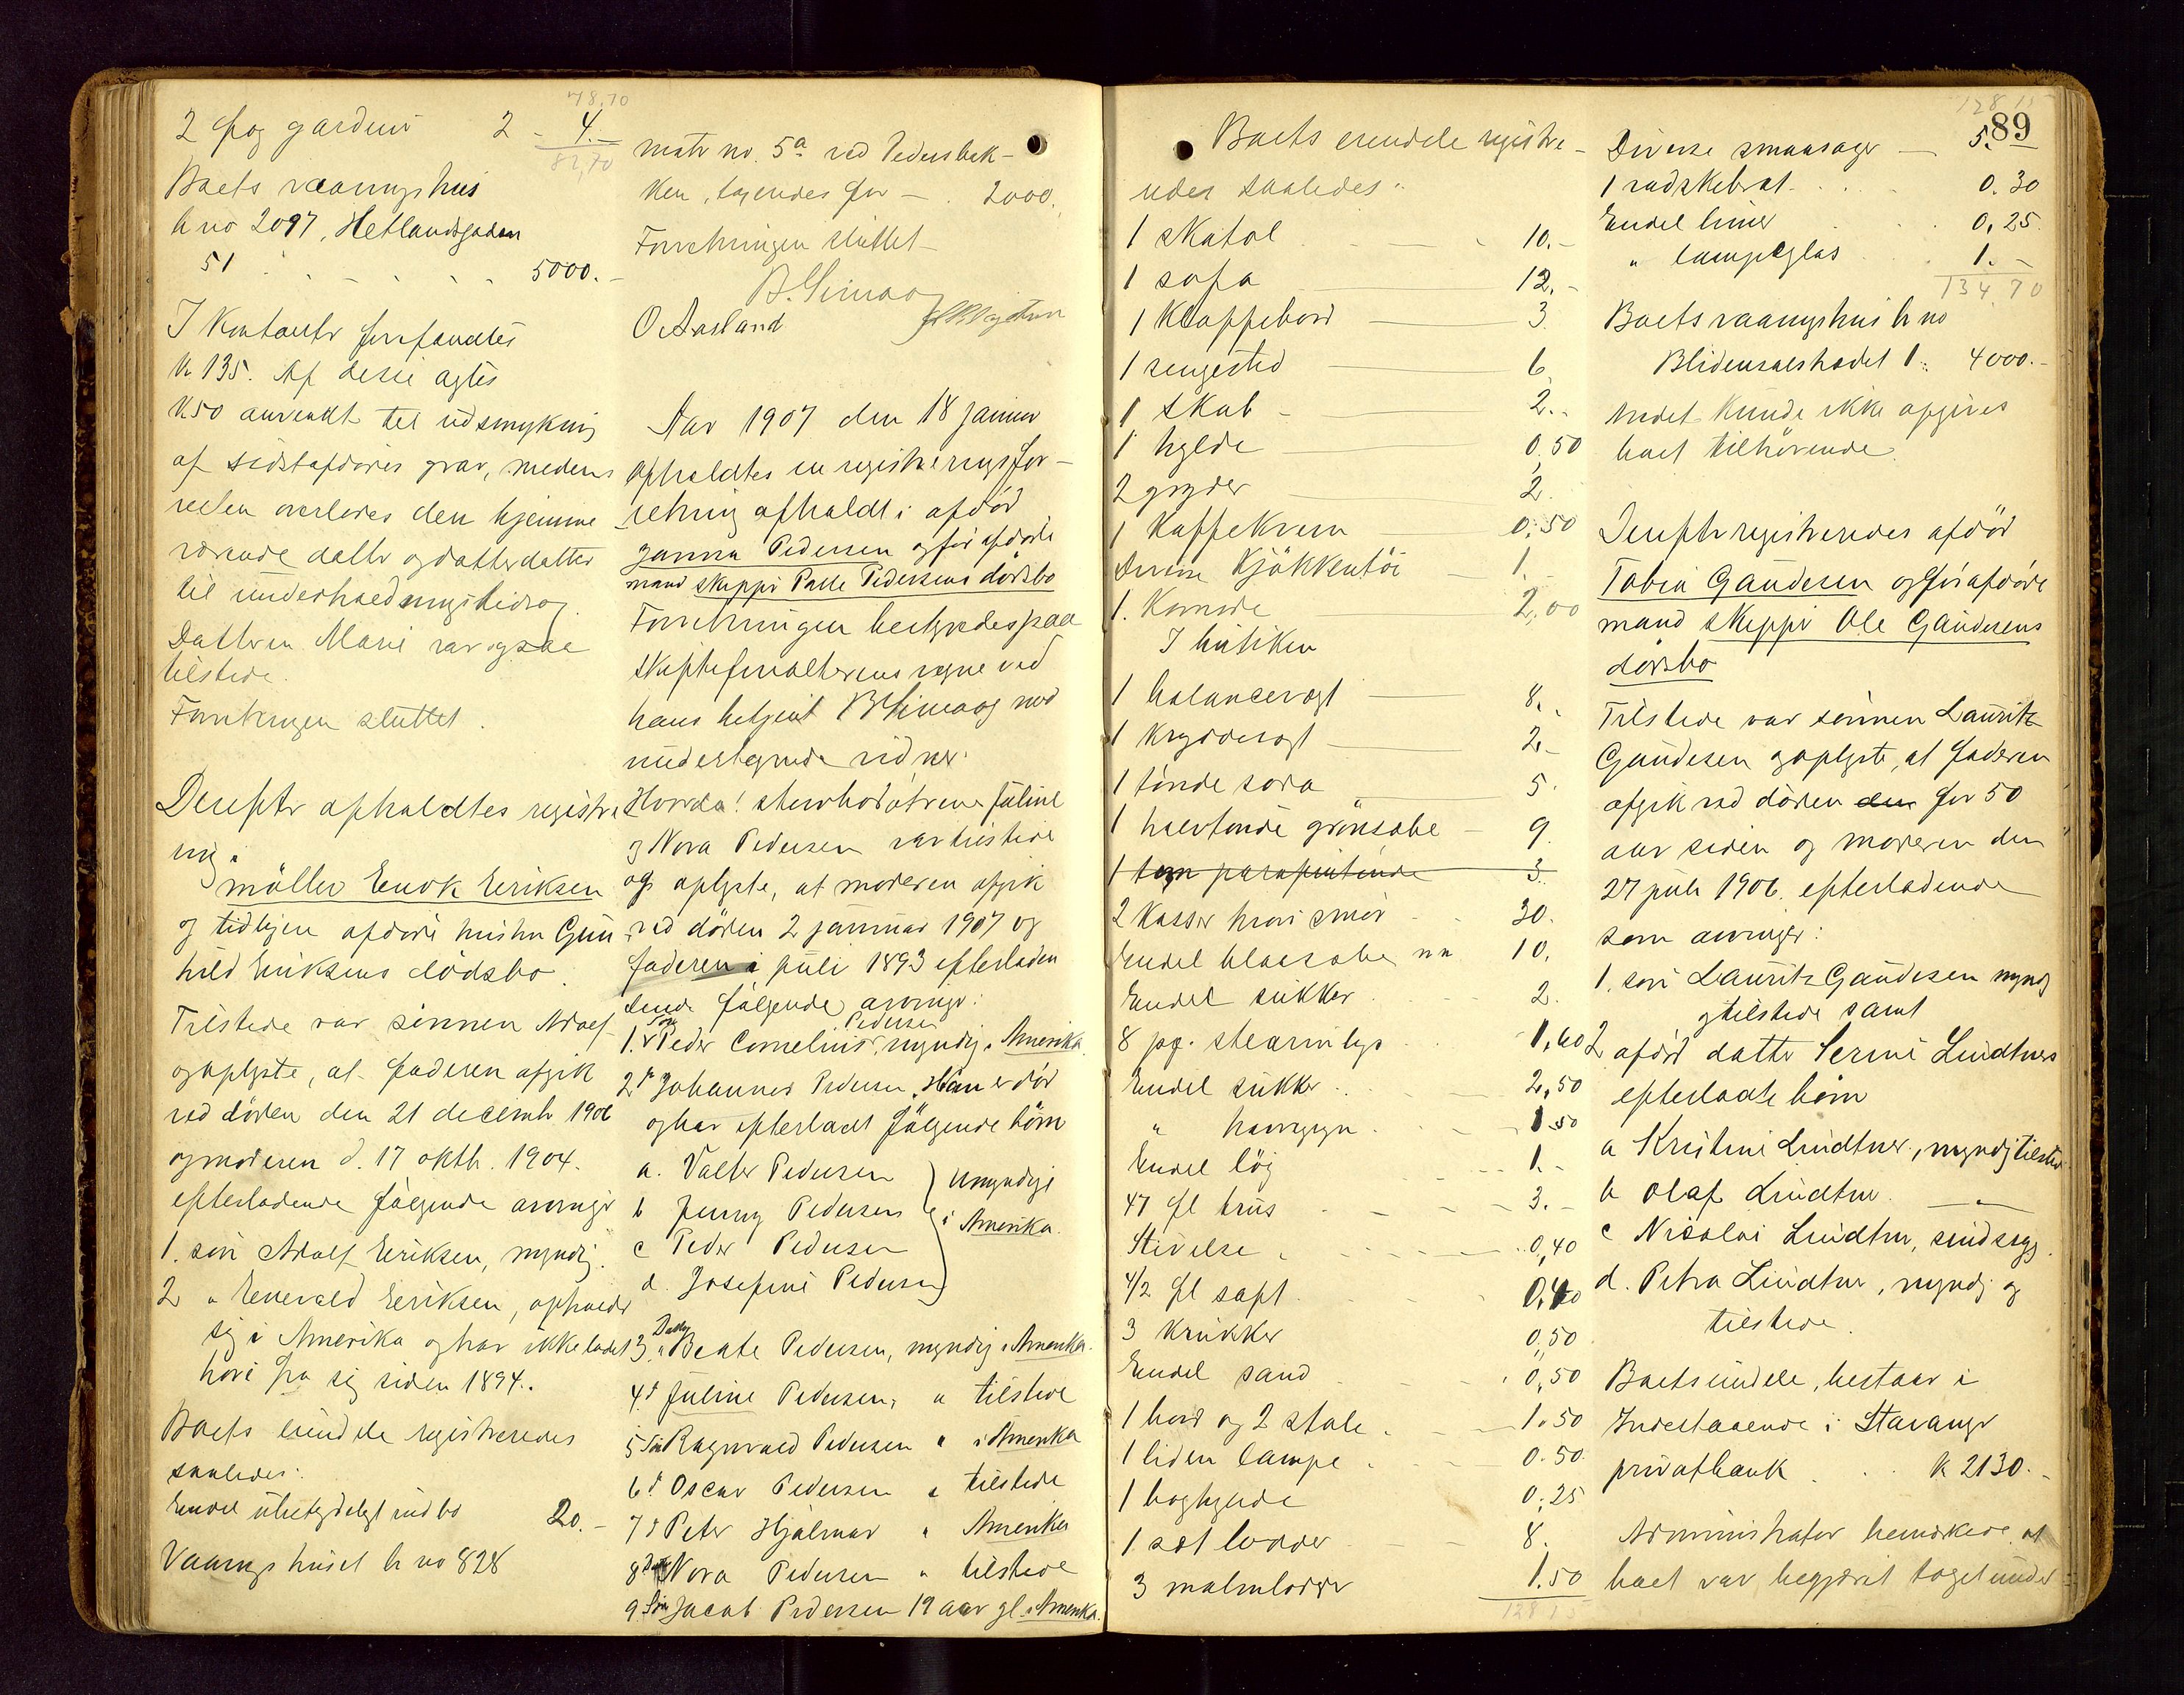 78,70
2 fag gardiner 2 - 4.-
82,70
Boets vaaningshus
br no 2097, Hetlandsgaden
51 . . . . . 5000.-
I Kontanter forefandtes
Kr 135. Af disse agtes
Kr 50 anvendt til udsmykning
af sidstafdødes grav, medens
resten overleves den hjemme
værende datter og datterdatter
til underholdningsbidrag.
Datteren Marie var ogsaa
tilstede.
Forretningen sluttet.
Derefter afholdtes registre
ring i
møller Enok Eriksen
og tidligere afdøde hustru Gun
hild Eriksens dødsbo.
Tilstede var sønnen Adolf
og oplyste, at faderen afgik
ved døden den 21 decembr 1906
og moderen d. 17 oktbr. 1904.
efterladende følgende arvinger
1. søn Adolf Eriksen, myndig.
2 " Enevald Eriksen, opholder
sig i Amerika og har ikke ladet
høre fra sig siden 1894.
Boets eiendele registreredes
saaledes:
Endel ubetydeligt indbo 20.-
Vaaningshuset br no 828
matr no. 5a ved Pedersbak-
ken, taxeredes for - . 2000.
Forretningen sluttet-
B. Simao
O Aasland
Aar 1907 den 18 januar
afholdtes en registreringsfor-
retning afholdt i afdød
Janna Pedersen og før afdøde
mand skipper Palle Pedersens dødsbo
Forretningen bestyredes paa
skifteforvalterens vegne ved
hans betjent B Simaog med
undertegnede vidner.
Hvorda! stervbodøtrene Juline
og Nora Pedersen var tilstede
og oplyste, at moderen afgik
ved døden 2 januar 1907 og
faderen i juli 1893 efterladen
dende følgende arvinger:
1. Søn Peder Cornelius Pedersen, myndig i Amerika
2 " Johannes Pedersen. Han er død
og har efterladt følgende børn
a. Valter Pedersen } umyndige
b Jenny Pedersen
c Peder Pedersen i Amerika.
d. Josefine Pedersen
3. Datter Beate Pedersen, myndig i Amerika.
4 " Juline Pedersen, " tilstede
5 Søn Ragnvald Pedersen " i Amerika
6 " Oscar Pedersen " tilstede
7 " Peter Hjalmar " Amerika
8 Datter Nora Pedersen " tilstede
9. Søn Jacob Pedersen 19 aar gl. i Amerika.
Boets eiendele registre-
redes saaledes:
1 skatol 10.-
1 sofa 12.-
1 Klappebord 3.
1 sengested 6.
1 skab - 2.-
1 hylde 0,50
2 gryder 2.
1 Kaffekvern 0,50
Diverse Kjøkkentøi 1.-
1. Komode 2,00
I butiken
1 balancevægt 8.-
1 Kryddevægt 2.-
1 tønde soda 5.
1 halvtønde grønsæbe 9.
1 tom parafintønde 3.
2 Kasser hvas smør 30.
Endel blaasæbe mm 10.
Endel sukker 2.
8 pg. stearinlys 1,60
Endel sukker 2,50
" havregryn 1.50
Endel løg 1.-
47 fl brus 3.-
Stivelse 0,40
4/2 fl saft 0,40
3 krukker 0,50
Endel sand 0,50
1 bord og 2 stole 1.50
1 liden lampe 0.50
1 boghylde 0,25
1 sæt lodder 8.
3 malmlodder 1.50
128 15
128 15
89
Diverse smaasager 5.-
1 sadskebræt . . . 0.30
Endel limer . . 0,25
" lampeglas . . 1.-
134,70
Boets vaaningshus br no
Blidensolstrædet 1: 4000.-
Andet kunde ikke opgives
boet tilhørende.
Derefter registreredes afdød
Tobia Gaudesen og før afdøde
mand skipper Ole Gaudesens
dødsbo
Tilstede var sønnen Lauritz
Gaudesen og oplyste, at faderen
afgik ved døden den for 50
aar siden og moderen den
27 juli 1906. efterladende
som arvinger:
1. søn Lauritz Gaudesen myndig
og tilstede samt
2 afdød datter Serine Lindtners
efterladte børn
a Kristine Lindtner, myndig tilstede
b Olaf Lindtner. - " -
c Nicolai Lindtner, sindssyg.
d. Petra Lindtner, myndig og
tilstede.
Boets eiendele, bestaar i
Indestaaende i Stavanger
privatbank . . . k 2130.-
Administrator bemærkede at
boet var begjæret taget under